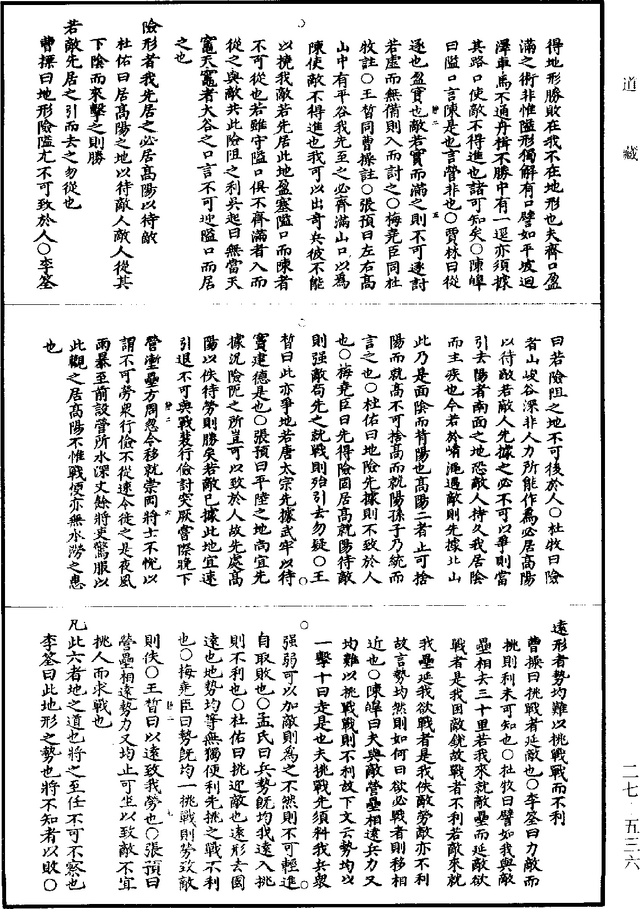 道藏
得地形勝敗在我不在地形也夫齊口盈
滿之術非惟隘形獨解有口譬如平坡迴
澤車馬不通舟楫不勝中有一逕亦須據
其路口使敵不得進也諸可知矣○陳皥
曰隘口言陳是也言營非也○賈林曰從
逐也盈實也敵若實而滿之則不可逐討
若虛而無備則入而討之○梅堯臣同杜
牧註○王晳同曹操註○張預曰左右高
山中有平谷我先至之必齊滿山口以為
陳使敵不得進也我可以出奇兵彼不能
以撓我敵若先居此地盈塞隘口而陳者
不可從也若雖守隘口俱不齊滿者入而
從之與敵共此險阻之利吳起曰無當天
竈天竈者大谷之口言不可迎隘口而居
之也
險形者我先居之必居高陽以待敵
杜佑曰居高陽之地以待敵人敵人從其
下陰而來擊之則勝
若敵先居之引而去之勿從也
曹操曰地形險隘尤不可致於人○李筌
曰若險阻之地不可後於人○杜牧曰險
者山峻谷深非人力所能作為必居高陽
以待敵若敵人先據之必不可以爭則當
引去陽者南面之地恐敵人持久我居陰
而生疾也今若於崤澠遇敵則先據北山
此乃是面陰而背陽也高陽二者止可捨
陽而就高不可捨高而就陽孫子乃統而
言之也○杜佑曰地險先據則不致於人
也○梅堯臣曰先得險固居高就陽待敵
則强敵苟先之就戰則殆引去勿疑○王
晳曰此亦爭地若唐太宗先據武牢以待
竇建德是也○張預曰平陸之地尚宜先
據況險阨之所豈可以致於人故先處高
陽以佚待勞則勝矣若敵已據此地宜速
引退不可與戰裴行儉討突厥嘗際晚下
營塹壘方周忽令移就崇岡將士不悅以
謂不可勞衆行儉不從速令徙之是夜風
雨暴至前設營所水深丈餘將吏驚服以
此觀之居高陽不惟戰便亦無水澇之患
也
遠形者勢均難以挑戰戰而不利
曹操曰挑戰者延敵也○李筌曰力敵而
挑則利未可知也○杜牧曰譬如我與敵
壘相去三十里若我來就敵壘而延敵欲
戰者是我困敵銳故戰者不利若敵來就
我壘延我欲戰者是我佚敵勞敵亦不利
故言勢均然則如何曰欲必戰者則移相
近也○陳皥曰夫與敵營壘相遠兵力又
均難以挑戰戰則不利故下文云勢均以
一擊十曰走是也夫挑戰先須料我兵衆
强弱可以加敵則為之不然則不可輕進
自取敗也○孟氏曰兵勢旣均我遠入挑
則不利也○杜佑曰挑迎敵也遠形去國
遠也地勢均等無獨便利先挑之戰不利
也○梅堯臣曰勢旣均一挑戰則勞致敵
則佚○王晳曰以遠致我勞也○張預曰
營壘相遠勢力又均止可坐以致敵不宜
挑人而求戰也
凡此六者地之道也將之至任不可不察也
李筌曰此地形之勢也將不知者以敗○
二七 五三六